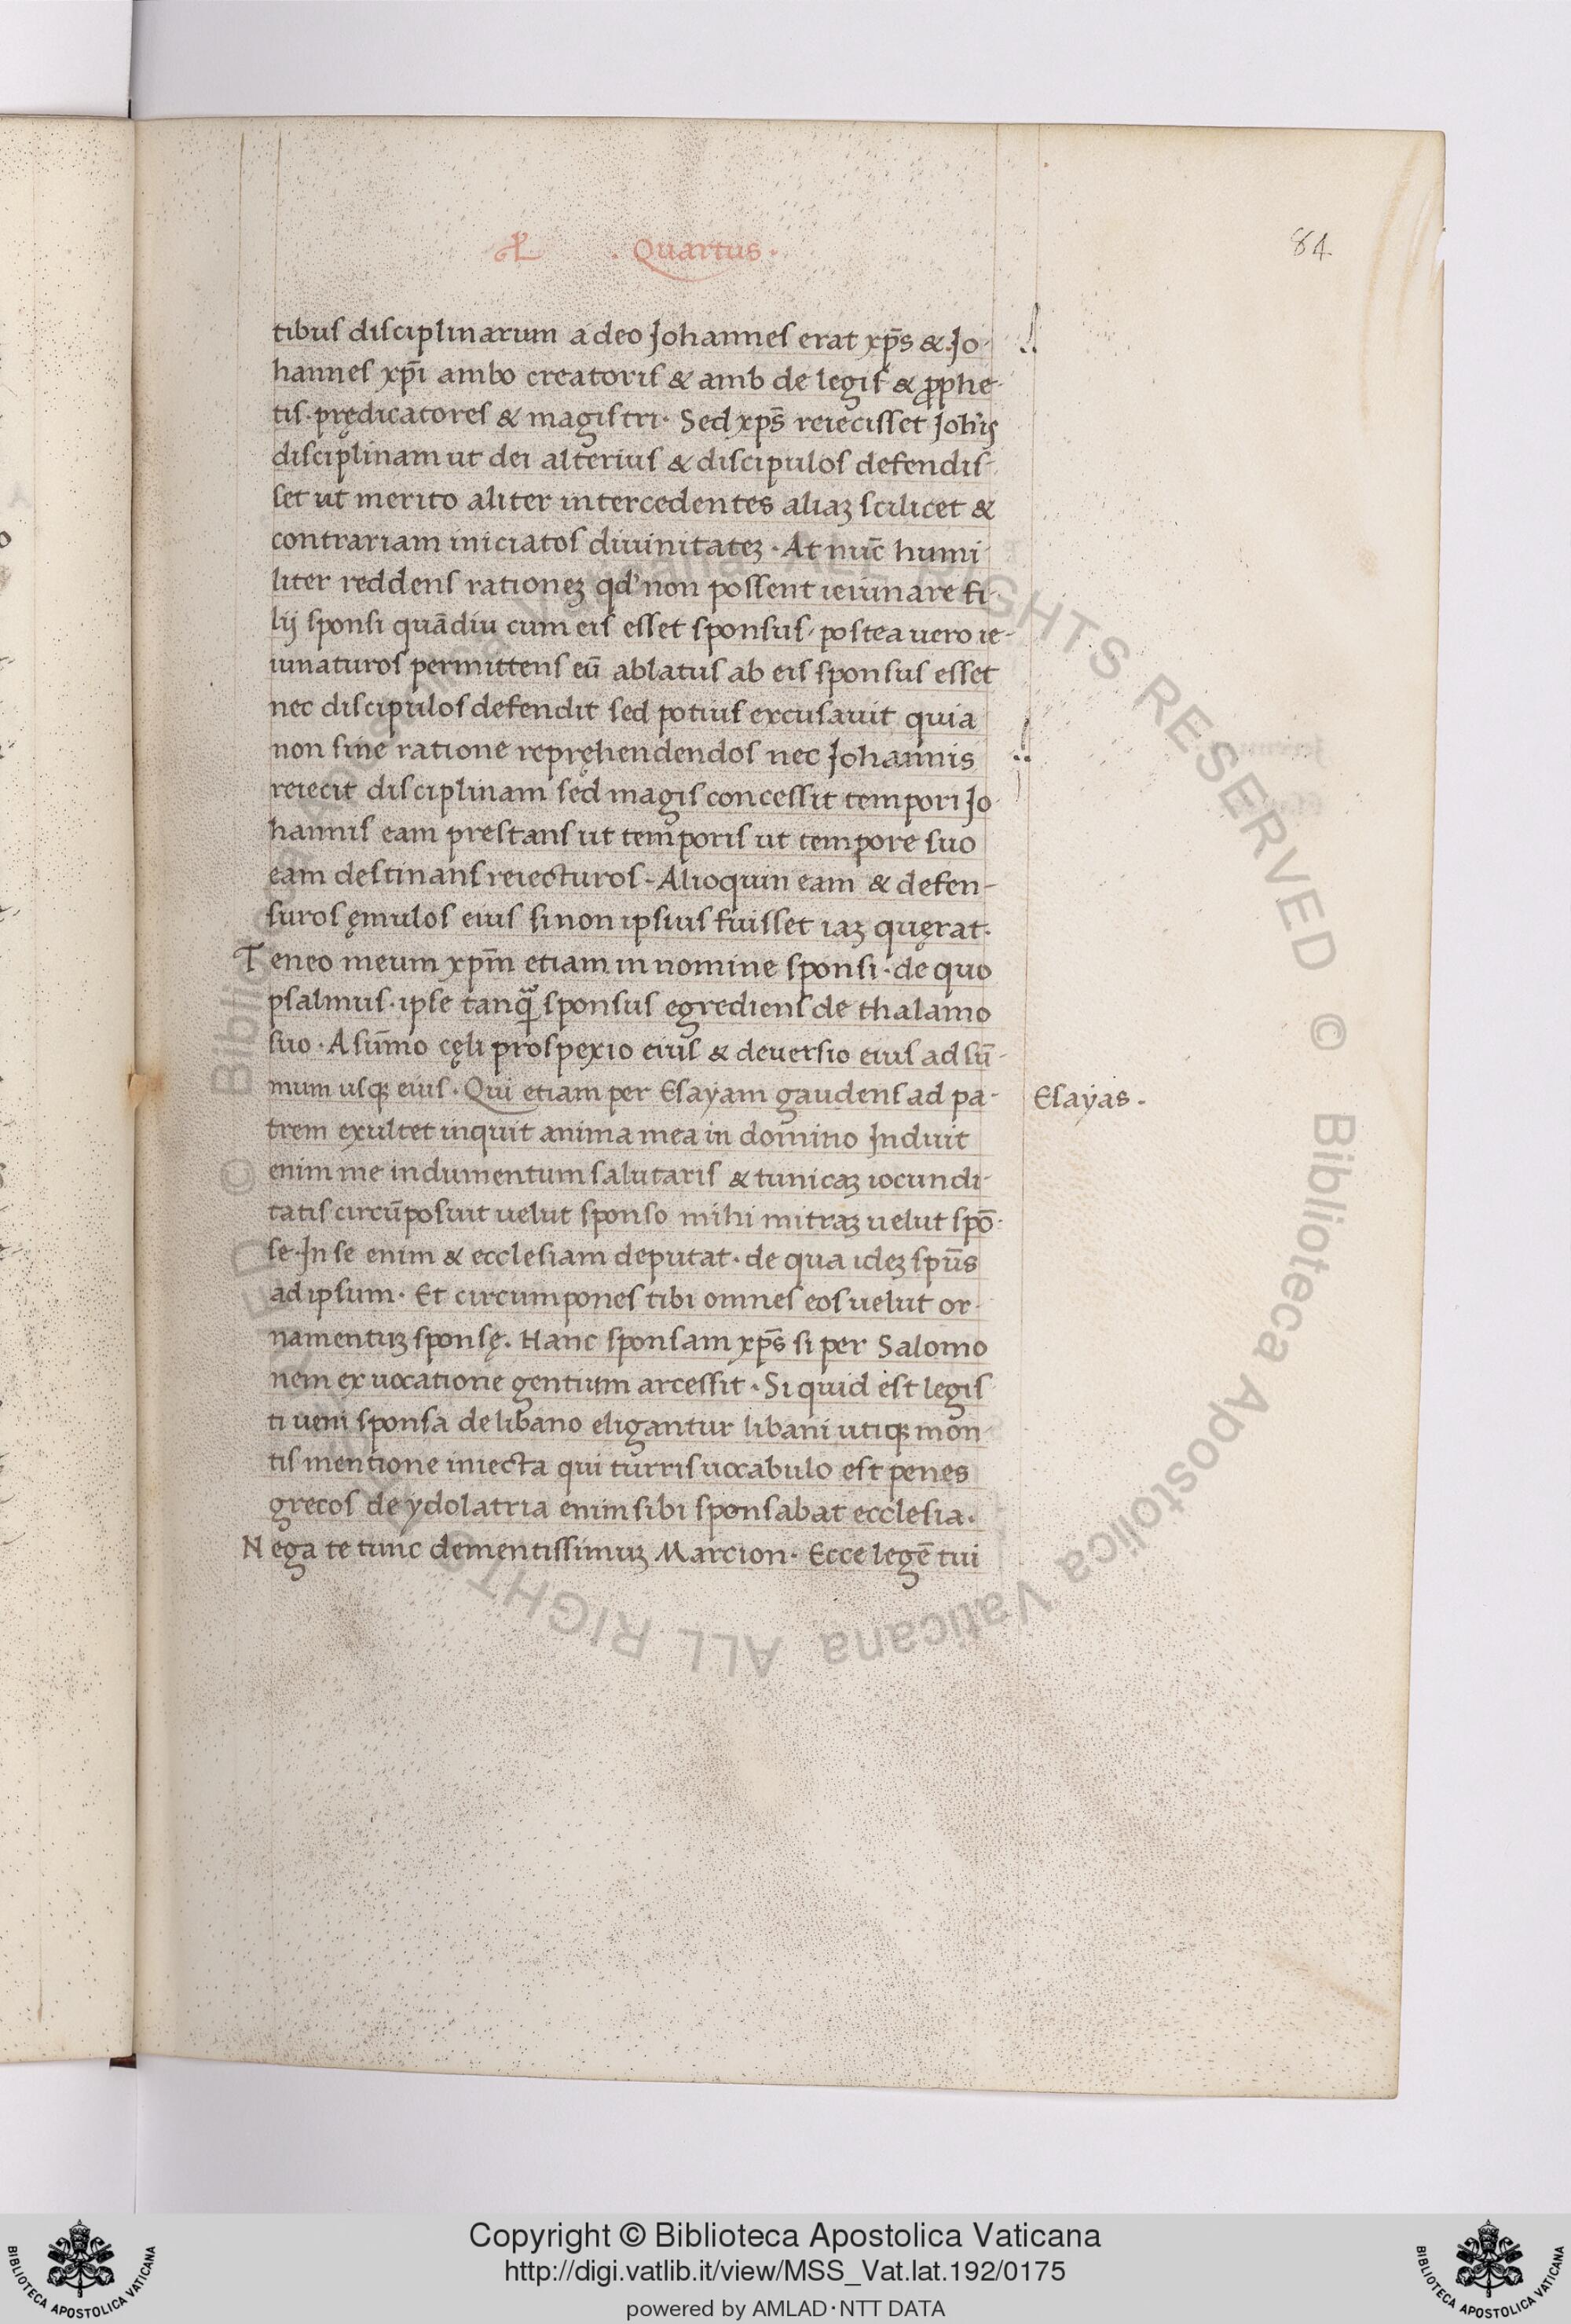 . Quartus .
84
tibus disciplinarum adeo Johannes erat xp̄s & Jo-
hannes xp̄i ambo creatoris & amb de legis & ꝓphe-
tis· prędicatores & magistri· Sed xp̄s reiecisset Joh'is
disciplinam ut dei alterius & discipulos defendis-
set ut merito aliter intercedentes aliaꝫ scilicet &
contrariam iniciatos diuinitateꝫ · At nūc humi-
liter reddens rationeꝫ qd' non possent ieiunare fi-
lij sponsi quādiu cum eis esset sponsus, postea uero ie-
iunaturos permittens cū ablatus ab eis sponsus esset
nec discipulos defendit sed potius excusauit quia
non sine ratione repręhendendos nec Johannis
reiecit disciplinam sed magis concessit tempori Jo-
hannis eam prestans ut temporis ut tempore suo
eam destinans reiecturos - Alioquin eam & defen-
suros ęmulos eius si non ipsius fuisset iaꝫ quęrat.
Teneo meum xpm̄ etiam in nomine sponsi· de quo
psalmus· ipse tanꝗ sponsus egrediens de thalamo
suo · A sūmo cęli prospexio eius & deuersio eius ad sū-
mum usqꝫ eius · Qui etiam per Esayam gaudens ad pa-
Esayas .
trem exultet inquit anima mea in domino Induit
enim me indumentum salutaris & tunicaꝫ iocundi-
tatis circūposuit uelut sponso mihi mitraꝫ uelut spō-
se· In se enim & ecclesiam deputat· de qua ideꝫ spūs
ad ipsum· Et circumpones tibi omnes eos uelut or-
namentuꝫ sponsę. Hanc sponsam xp̄s si per Salomo
nem ex uocatione gentium arcessit · Si quid est legis
ti ueni sponsa de libano eligantur libani utiqꝫ mon
tis mentione iniecta qui turris uocabulo est penes
grecos de ydolatria enim sibi sponsabat ecclesia.
Nega te tunc dementissimuꝫ Marcion· Ecce legē tui
Copyright © Biblioteca Apostolica Vaticana
http://digi.vatlib.it/view/MSS_Vat.lat.192/0175
powered by AMLAD·NTT DATA
BIBLIOTECA APOSTOLICA VATICANA
BIBLIOTECA APOSTOLICA VATICANA
© Biblioteca Apostolica Vaticana ALL RIGHTS RESERVED
© Biblioteca Apostolica Vaticana ALL RIGHTS RESERVED